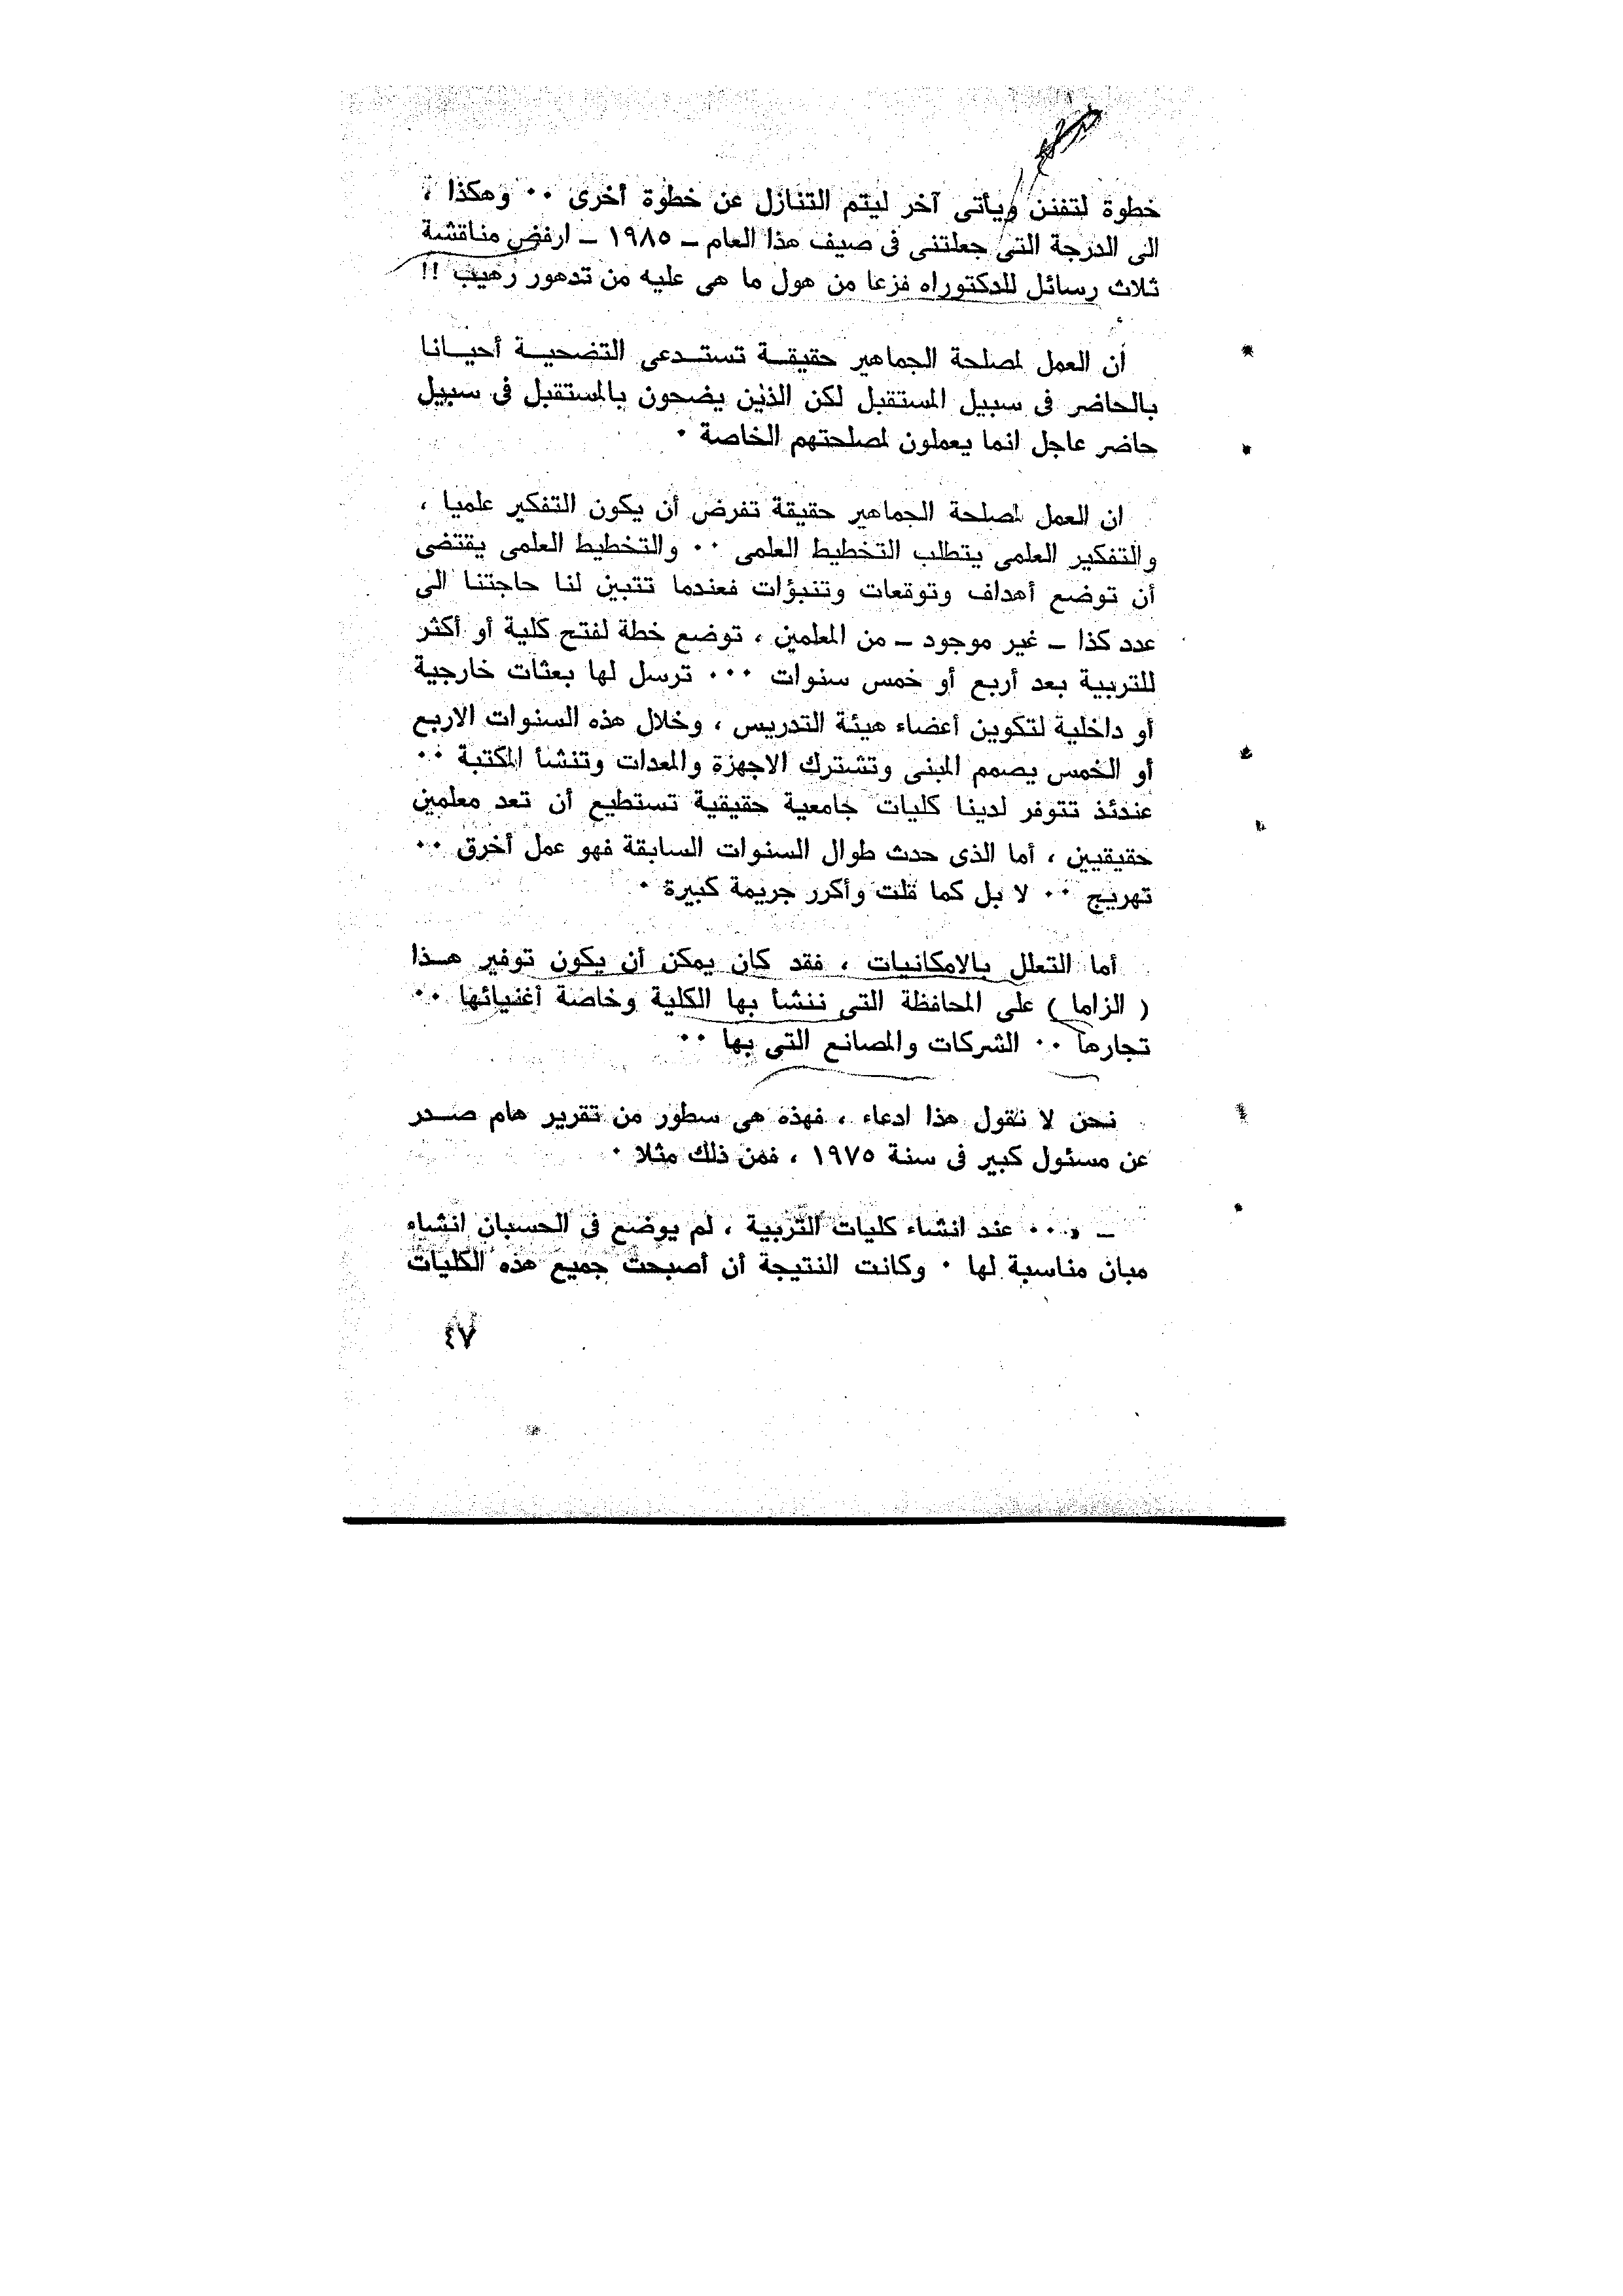 خطوة لتفنن ويأتى آخر ليتم التنازل عن خطوة أخرى ٠٠ وهكذا ،
الى الدرجة التى جعلتنى فى صيف هذا العام ــ ١٩٨٥ ــ ارفض مناقشة
ثلاث رسائل للدكتوراه فزعا من هول ما هى عليه من تدهور رهيب !!
أن العمل لمصلحة الجماهير حقيقــة تستــدعى التضحيــة أحيــانا
بالحاضر فى سبيل المستقبل لكن الذين يضحون بالمستقبل فى سبيل
حاضر عاجل انما يعملون لمصلحتهم الخاصة ٠
ان العمل لمصلحة الجماهير حقيقة تفرض أن يكون التفكير علميا ،
والتفكير العلمى يتطلب التخطيط العلمى ٠٠ والتخطيط العلمى يقتضى
أن توضع أهداف وتوقعات وتنبؤات فعندما تتبين لنا حاجتنا الى
عدد كذا ــ غير موجود ــ من المعلمين ، توضع خطة لفتح كلية أو أكثر
للتربية بعد أربع أو خمس سنوات ٠٠٠ ترسل لها بعثات خارجية
أو داخلية لتكوين أعضاء هيئة التدريس ، وخلال هذه السنوات الاربع
أو الخمس يصمم المبنى وتشترك الاجهزة والمعدات وتنشأ المكتبة ٠٠
عندئذ تتوفر لدينا كليات جامعية حقيقية تستطيع أن تعد معلمين
حقيقيين ، أما الذى حدث طوال السنوات السابقة فهو عمل أخرق ٠٠
تهريج ٠٠ لا بل كما قلت وأكرر جريمة كبيرة ٠
أما التعلل بالامكانيات ، فقد كان يمكن أن يكون توفير هــذا
( الزاما ) على المحافظة التى ننشأ بها الكلية وخاصة أغنيائها ٠٠
تجارها ٠٠ الشركات والمصانع التى بها ٠٠
نحن لا نقول هذا ادعاء ، فهذه هى سطور من تقرير هام صــدر
عن مسئول كبير فى سنة ١٩٧٥ ، فمن ذلك مثلا ٠
ــ ٠٠٠ عند انشاء كليات التربية ، لم يوضع فى الحسبان انشاء
مبان مناسبة لها ٠ وكانت النتيجة أن أصبحت جميع هذه الكليات
٤٧